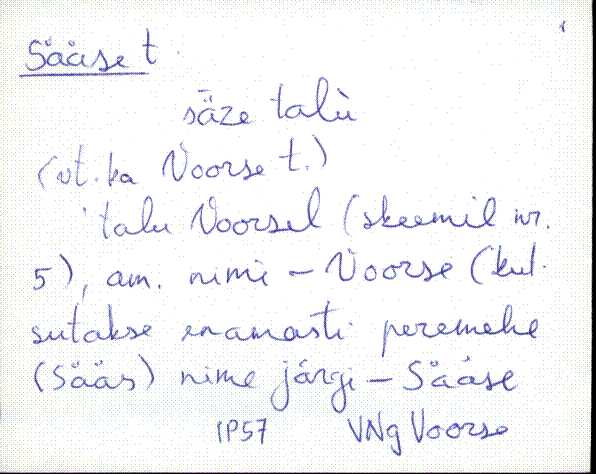 Sääse t.
sä̆ze talù
(vt. ka Voorse t.)
talu Voorsel (skeemil nr.
5), am. nimi – Voorse (kut-
sutakse enamasti peremehe
(Sääs) nime järgi – Sääse
IP57 VNg Voorse